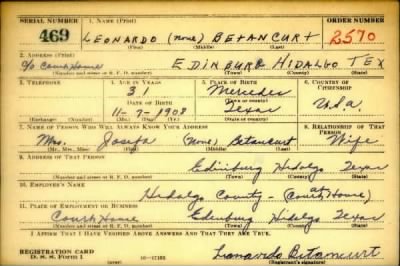 SERIAL NUMBER 1. NAME (Print) ORDER NUMBER
469 LEONARDO (none) BETANCURT 2570
(First) (Middle) (Last)
2. ADDRESS (Print)
c/o Court House EDINBURG HIDALGO TEX
(Number and street or R. F. D. number) (Town) (County) (State)
3. TELEPHONE 4. AGE IN YEARS 5. PLACE OF BIRTH 6. COUNTRY OF CITIZENSHIP
31 Mercedes
DATE OF BIRTH (Town or county)
11-7-1908 Texas U.S.a.
(Exchange) (Number) (Mo.) (Day) (Yr.) (State or country)
7. NAME OF PERSON WHO WILL ALWAYS KNOW YOUR ADDRESS 8. RELATIONSHIP OF THAT PERSON
Mrs. Josefa (None) Betancurt Wife
(Mr., Mrs., Miss) (First) (Middle) (Last)
9. ADDRESS OF THAT PERSON
Edinburg Hidalgo Texas
(Number and street or R. F. D. number) (Town) (County) (State)
10. EMPLOYER'S NAME
Hidalgo County - (at Court House)
11. PLACE OF EMPLOYMENT OR BUSINESS
Court House Edinburg Hidalgo Texas
(Number and street or R. F. D. number) (Town) (County) (State)
I AFFIRM THAT I HAVE VERIFIED ABOVE ANSWERS AND THAT THEY ARE TRUE.
REGISTRATION CARD
D. S. S. Form 1 Leonardo Betancurt
(Registrant's signature)